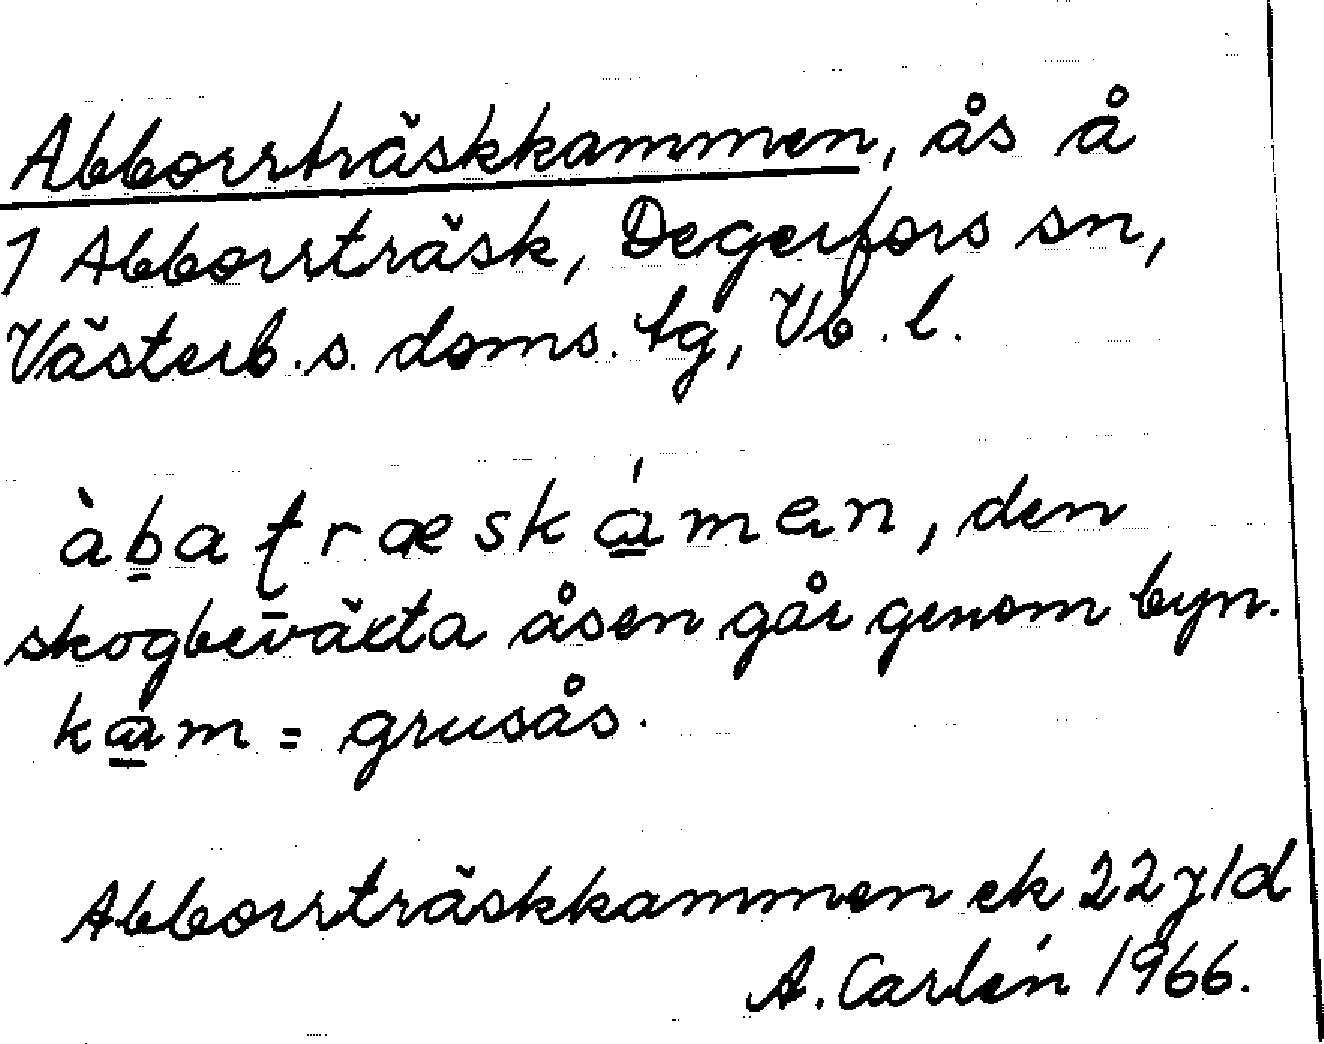 Abborrträskkammen, ås å
1 Abborrträsk, Degerfors sn,
Västerb. s. doms. tg, Vb. l.
àb̠aƫræskɑ̠́mən, den
skogbeväxta åsen går genom byn.
kɑ̠m = grusås.
Abborrträskkammen ek 22 y1d
A. Carlén 1966.